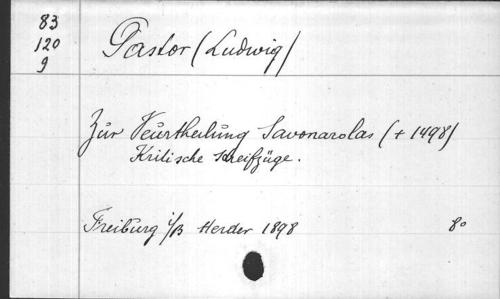 83
120
9
Pastor (Ludwig)
Zur Beurtheilung Savonarolas († 1498)
Kritische Streifzüge.
Freiburg i/B Herder 1898 8°